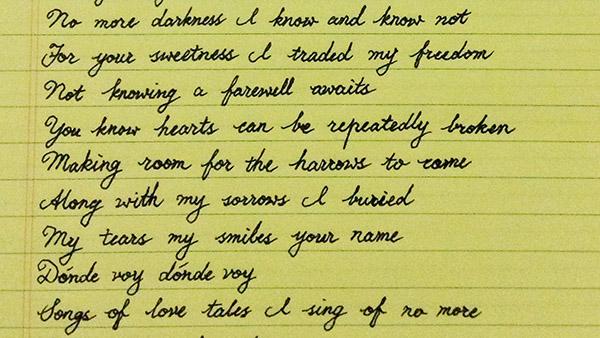 No more darkness I know and know not
For your sweetness I traded my freedom
Not knowing a farewell awaits
You know hearts can be repeatedly broken
Making room for the harrows to come
Along with my sorrows I buried
My tears my smiles your name
Dónde voy dónde voy
Songs of love tales I sing of no more